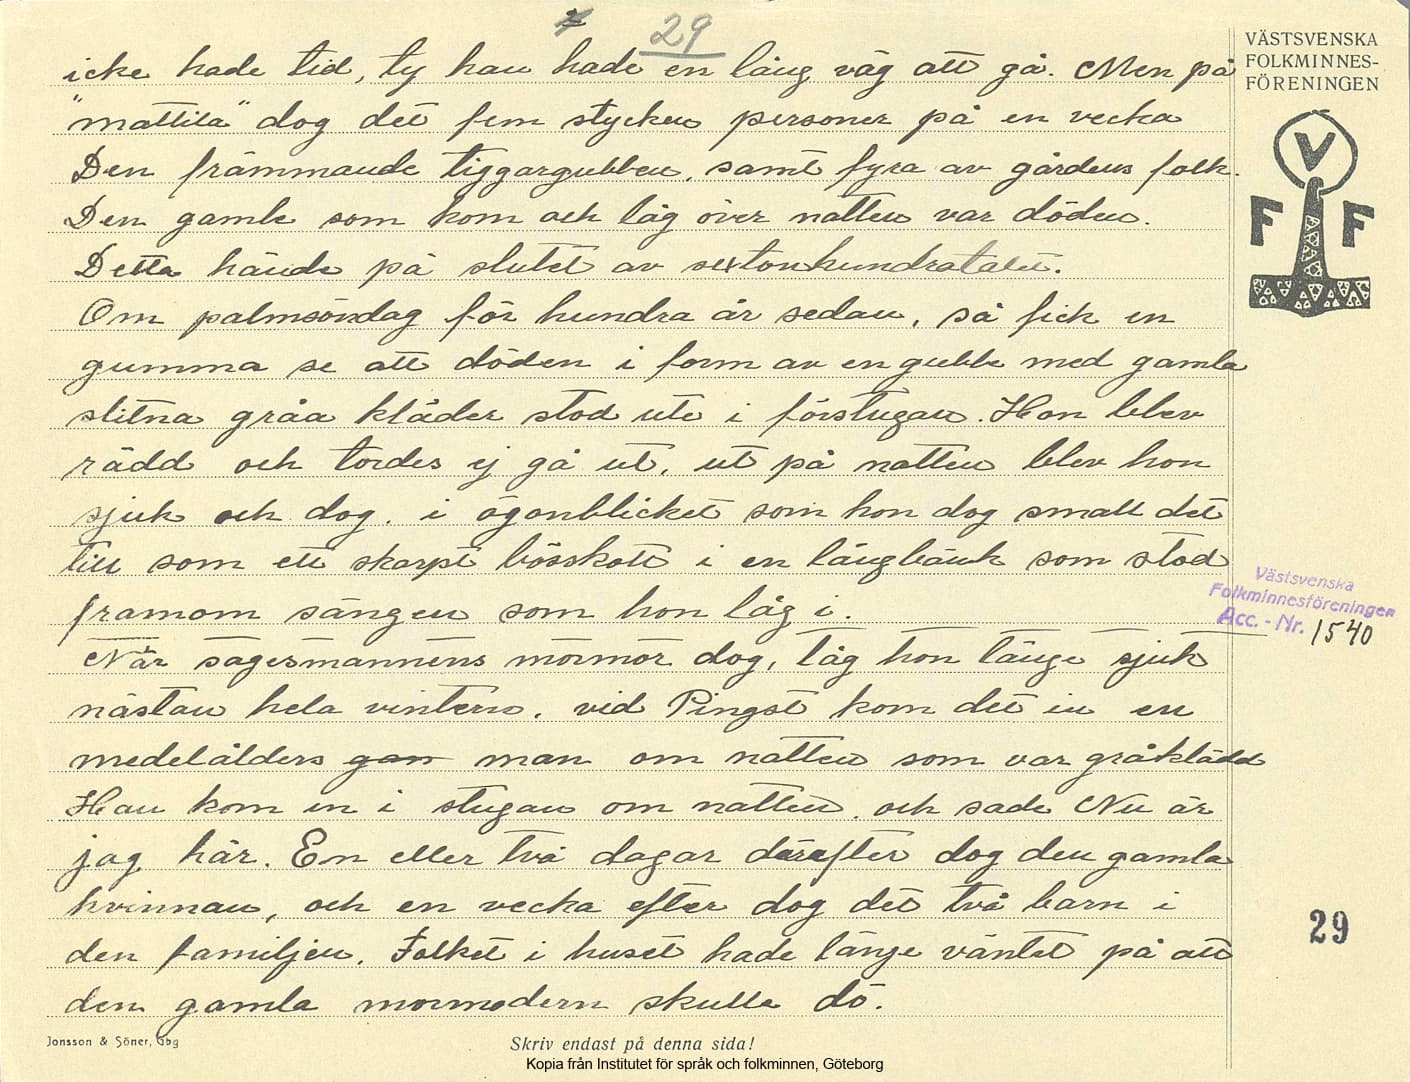 29
icke hade tid, ty han hade en lång väg att gå. Men på
"mattila" dog det fem stycken personer på en vecka
Den främmande tiggargubben, samt fyra av gårdens folk.
Den gamle som kom och låg över natten var döden.
Detta hände på slutet av sextonhundratalet.
Om palmsöndag för hundra år sedan, så fick en
gumma se att döden i form av en gubbe med gamla
slitna gråa kläder stod ute i förstugan. Hon blev
rädd och tordes ej gå ut, ut på natten blev hon
sjuk och dog. i ögonblicket som hon dog small det
till som ett skarpt bösskott i en långbänk som stod
framom sängen som hon låg i.
När sagesmannens mormor dog, låg hon länge sjuk
nästan hela vintern. vid Pingst kom det in en
medelålders gam man om natten som var gråklädd
Han kom in i stugan om natten, och sade Nu är
jag här. En eller två dagar därefter dog den gamla
kvinnan, och en vecka efter dog det två barn i
den familjen. Folket i huset hade länge väntat på att
den gamla mormodern skulle dö.
VÄSTSVENSKA
FOLKMINNES-
FÖRENINGEN
V
F F
Västsvenska
Folkminnesföreningen
Acc. - Nr. 1540
29
Jonsson & Söner, Gbg
Skriv endast på denna sida!
Kopia från Institutet för språk och folkminnen, Göteborg